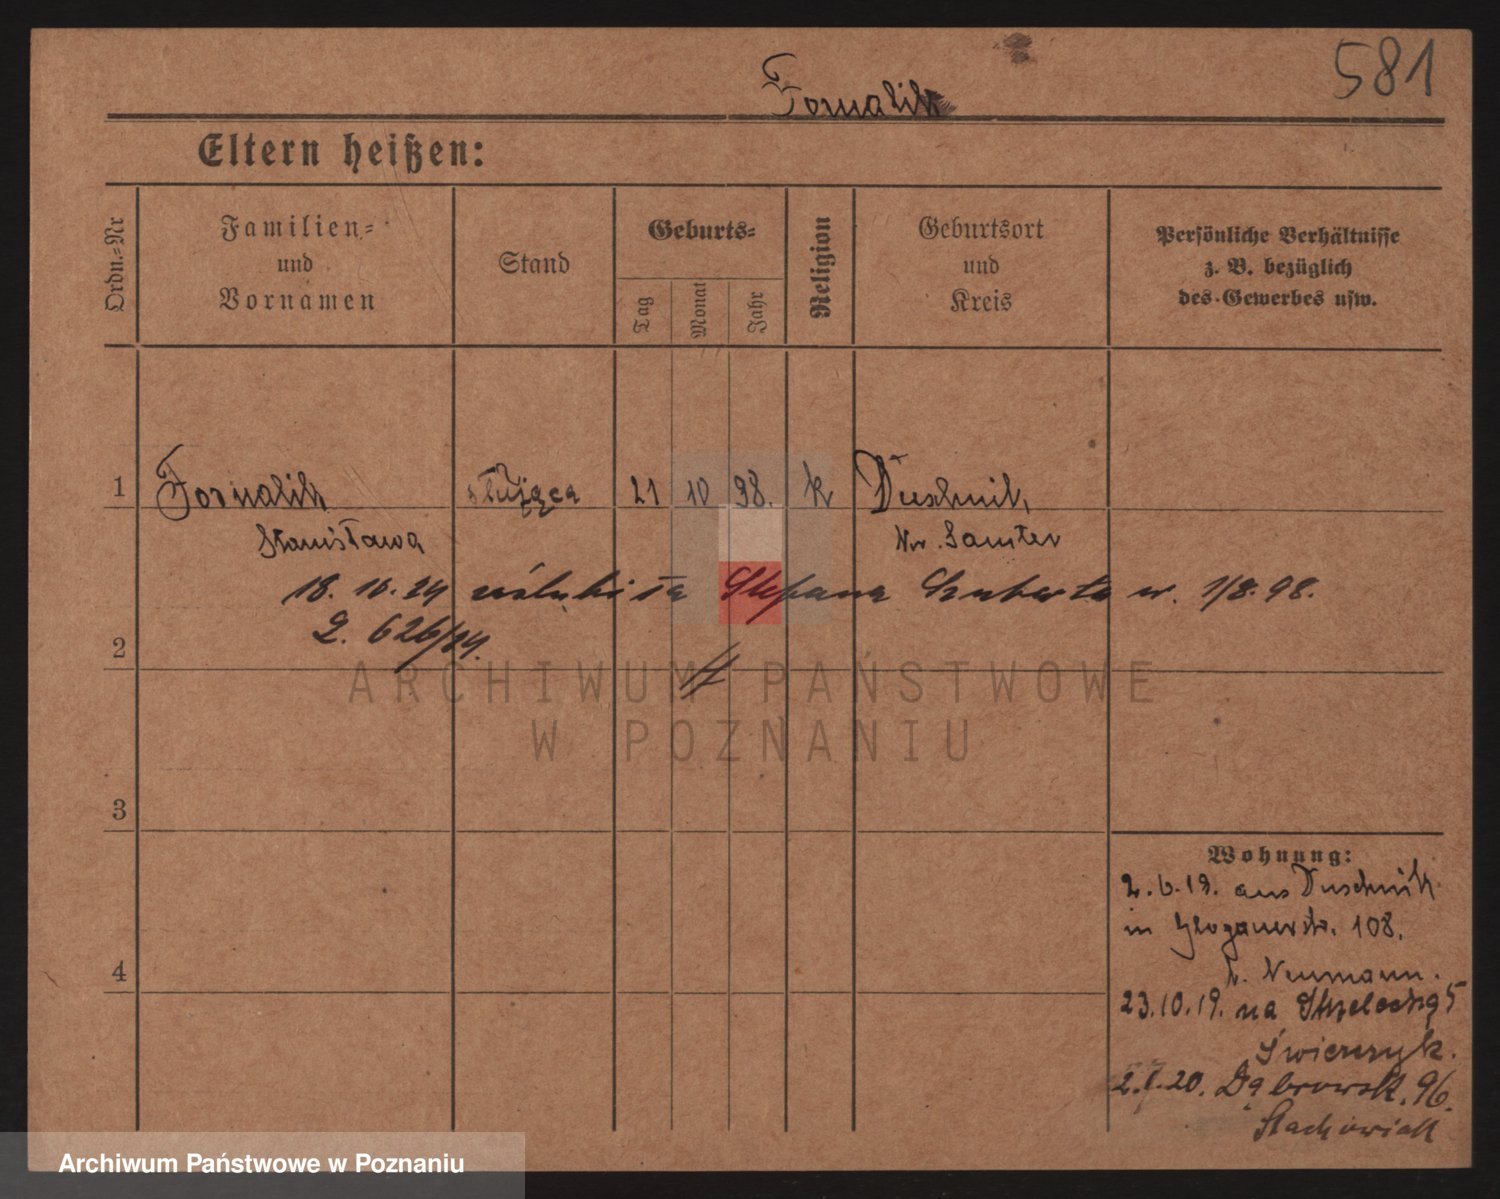 581
Fornalik
Eltern heißen:
Ordn.-Nr
Familien-
und
Vornamen
Stand
Geburts-
Tag
Monat
Jahr
Religion
Geburtsort
und
Kreis
Persönliche Verhältnisse
z. B. bezüglich
des Gewerbes usw.
1 Fornalik służąca 21 10 98. k Duschnik,
Stanisława Kr. Samter
18. 10. 24 zaślubiła Stefana Szuberta ur. 1/8.98.
L. 626/24.
2
3
4
Wohnung:
2.6.19. aus Duschnik
in Glogauerstr. 108.
b. Neumann.
23.10.19. na Strzelecką 5
Świerczyk.
2.1.20. Dąbrowsk. 96.
Stachowiak
ARCHIWUM PAŃSTWOWE
W POZNANIU
Archiwum Państwowe w Poznaniu